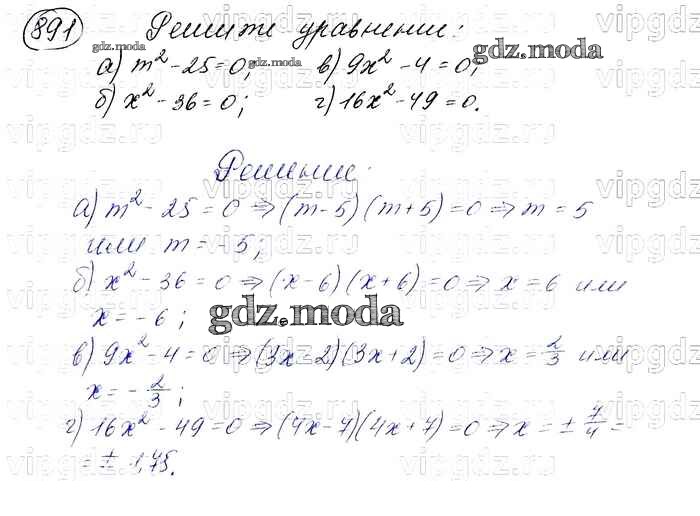 891 Решите уравнение:
а) m² - 25 = 0; в) 9x² - 4 = 0;
б) x² - 36 = 0; г) 16x² - 49 = 0.
Решение:
а) m² - 25 = 0 ⇒ (m - 5)(m + 5) = 0 ⇒ m = 5
или m = - 5;
б) x² - 36 = 0 ⇒ (x - 6)(x + 6) = 0 ⇒ x = 6 или
x = - 6;
gdz.moda
в) 9x² - 4 = 0 ⇒ (3x - 2)(3x + 2) = 0 ⇒ x = 2/3 или
x = - 2/3;
г) 16x² - 49 = 0 ⇒ (4x - 7)(4x + 7) = 0 ⇒ x = ± 7/4 =
= ± 1,75.